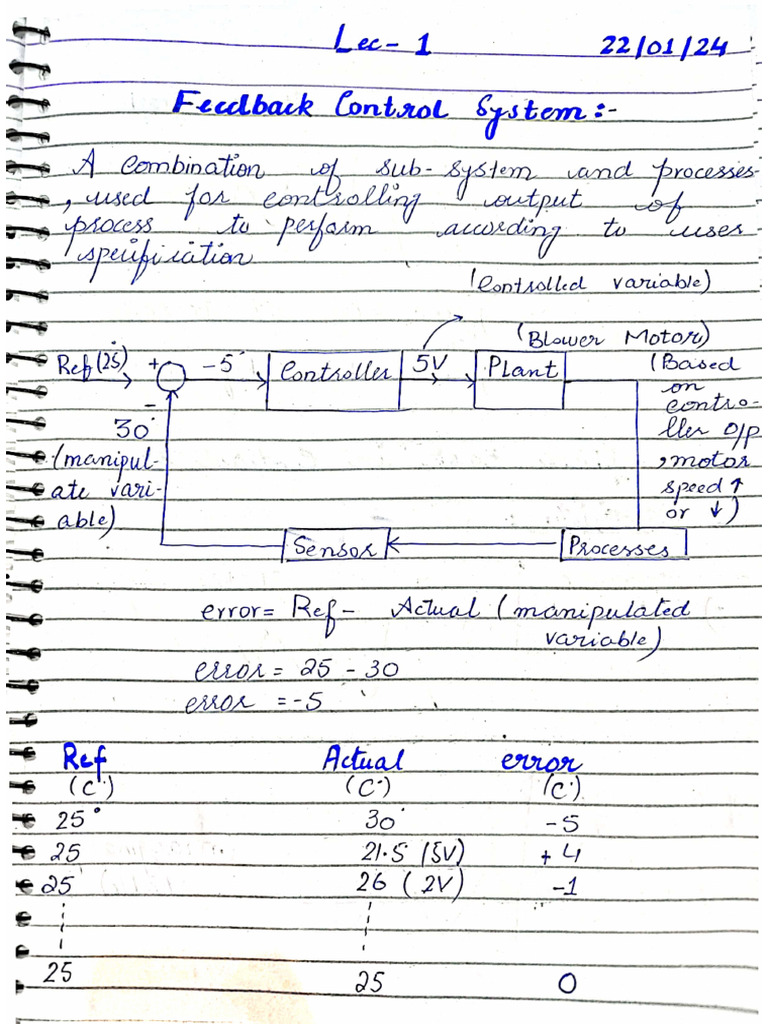 Lec-1 22/01/24
Feedback Control System:-
A Combination of sub-system and processes
, used for controlling output of
process to perform according to user
specification
(Controlled variable)
(Blower Motor)
Ref (25°) + -5° Controller 5V Plant (Based
on
contro-
ller O/p
, motor
speed ↑
or ↓)
-
30°
(manipul-
ate vari-
able)
Sensor Processes
error = Ref - Actual (manipulated
variable)
error = 25 - 30
error = -5
Ref Actual error
(C°) (C°) (C°)
25° 30° -5
25 21.5 (5V) +4
25 26 (2V) -1
25 25 0